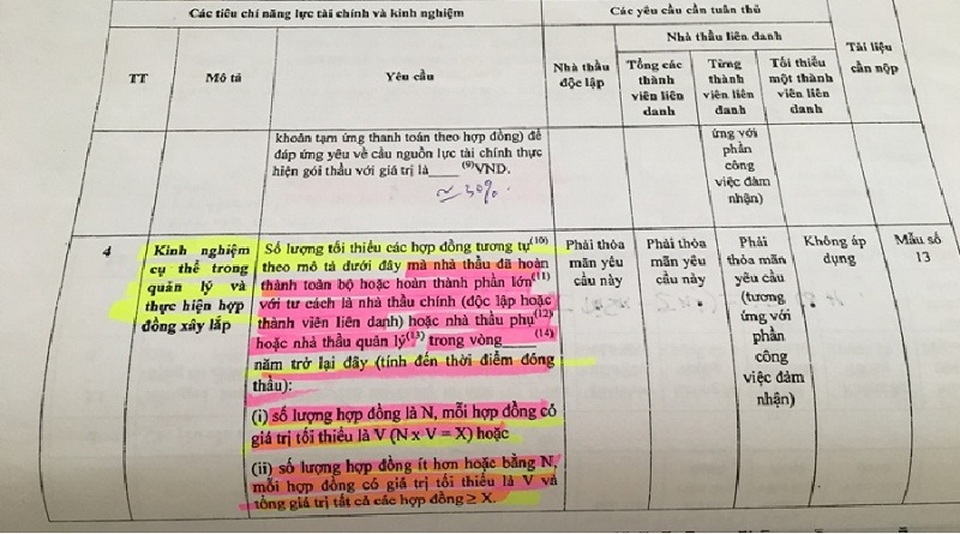 Các tiêu chí năng lực tài chính và kinh nghiệm
Các yêu cầu cần tuân thủ
Tài liệu
cần nộp
TT
Mô tả
Yêu cầu
Nhà thầu
độc lập
Nhà thầu liên danh
Tổng các
thành
viên liên
danh
Từng
thành
viên liên
danh
Tối thiểu
một thành
viên liên
danh
khoản tạm ứng thanh toán theo hợp đồng) để
đáp ứng yêu về cầu nguồn lực tài chính thực
hiện gói thầu với giá trị là____ (9)VND.
≈ 30%
ứng với
phần
công
việc đảm
nhận)
4
Kinh nghiệm
cụ thể trong
quản lý và
thực hiện hợp
đồng xây lắp
Số lượng tối thiểu các hợp đồng tương tự(10)
theo mô tả dưới đây mà nhà thầu đã hoàn
thành toàn bộ hoặc hoàn thành phần lớn(11)
với tư cách là nhà thầu chính (độc lập hoặc
thành viên liên danh) hoặc nhà thầu phụ(12)
hoặc nhà thầu quản lý(13) trong vòng____ (14)
năm trở lại đây (tính đến thời điểm đóng
thầu):
(i) số lượng hợp đồng là N, mỗi hợp đồng có
giá trị tối thiểu là V (N x V = X) hoặc
(ii) số lượng hợp đồng ít hơn hoặc bằng N,
mỗi hợp đồng có giá trị tối thiểu là V và
tổng giá trị tất cả các hợp đồng ≥ X.
Phải thỏa
mãn yêu
cầu này
Phải thỏa
mãn yêu
cầu này
Phải
thỏa mãn
yêu cầu
(tương
ứng với
phần
công
việc đảm
nhận)
Không áp
dụng
Mẫu số
13